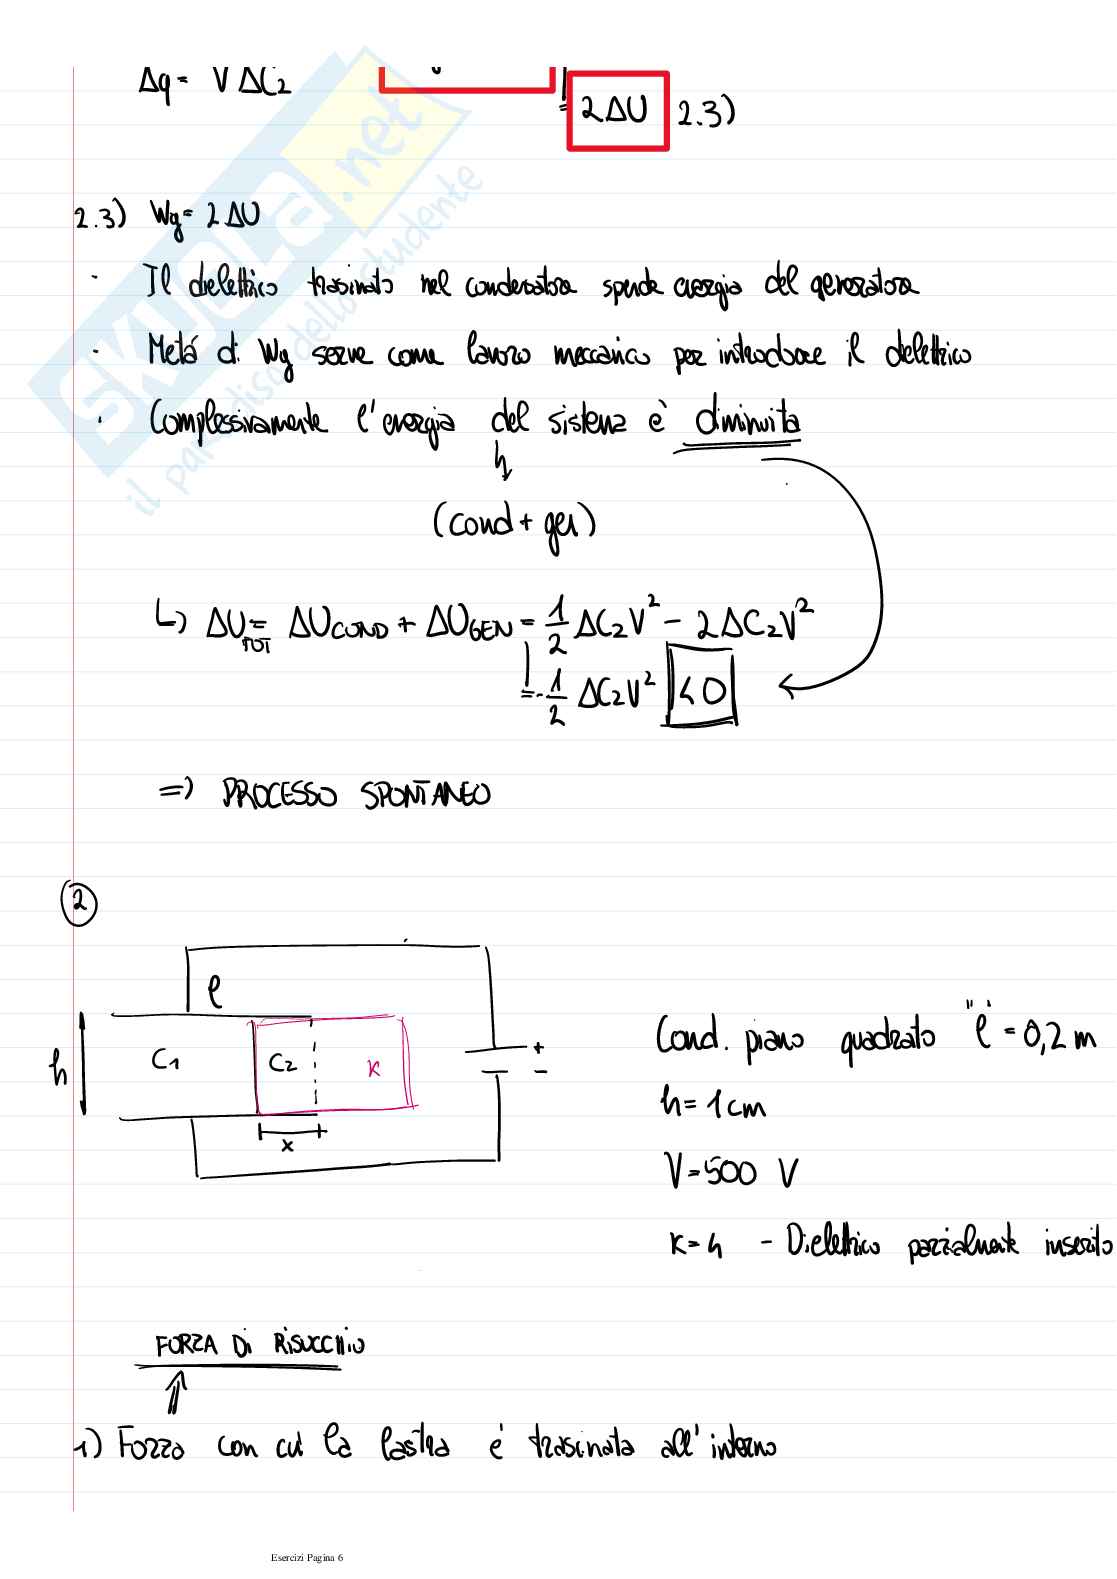 Δq = V ΔC₂
= 2ΔU 2.3)
2.3) Wg = 2ΔU
· Il dielettico trasinato nel condensatore spende energia del generatore
· Metá di Wg serve come lavoro meccanico per introdurre il delettrico
· Complessivamente l'energia del sistema è diminuita
(cond + gen)
↳ ΔU_TOT = ΔU_COND + ΔU_GEN = 1/2 ΔC₂V² - 2ΔC₂V²
= - 1/2 ΔC₂V² < 0
=> PROCESSO SPONTANEO
2
ℓ
h C₁ C₂ K + -
x
Cond. piano quadrato "ℓ" = 0,2 m
h = 1 cm
V = 500 V
K = 4 - Dielettrico parzialmente inserito
FORZA DI RISUCCHIO
1) Forza con cui la lastra é trascinata all'interno
Esercizi Pagina 6
SKUOLA.net
il paradiso dello studente